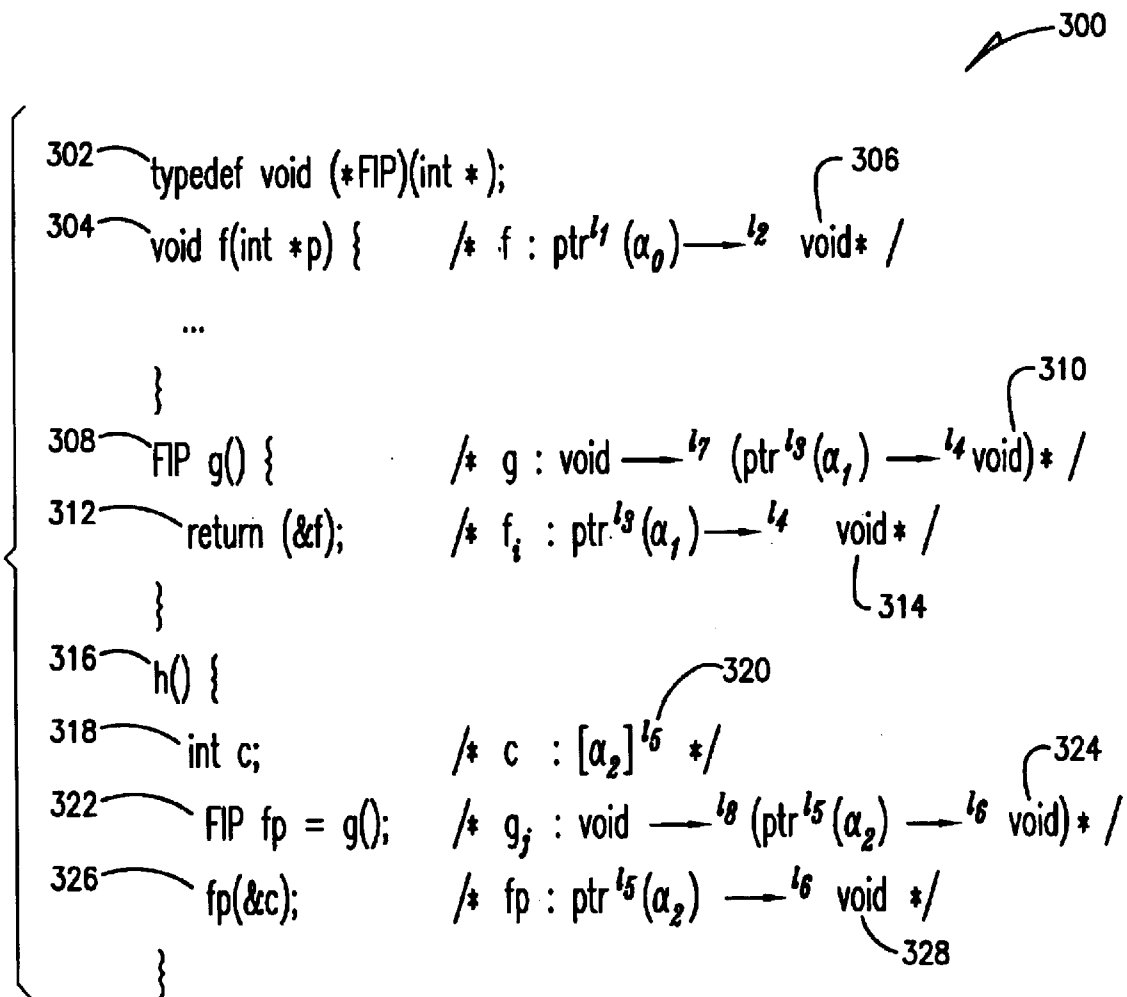 300
302 typedef void (*FIP)(int *); 306
304 void f(int *p) { /* f : ptr^l₁ (α₀) ⟶ ^l₂ void* /
...
}
310
308 FIP g() { /* g : void ⟶ ^l₇ (ptr^l₃(α₁) ⟶ ^l₄ void)* /
312 return (&f); /* fᵢ : ptr^l₃(α₁) ⟶ ^l₄ void* /
} 314
316 h() { 320
318 int c; /* c : [α₂]^l₅ */
324
322 FIP fp = g(); /* gⱼ : void ⟶ ^l₈ (ptr^l₅(α₂) ⟶ ^l₆ void)* /
326 fp(&c); /* fp : ptr^l₅(α₂) ⟶ ^l₆ void */
328
}